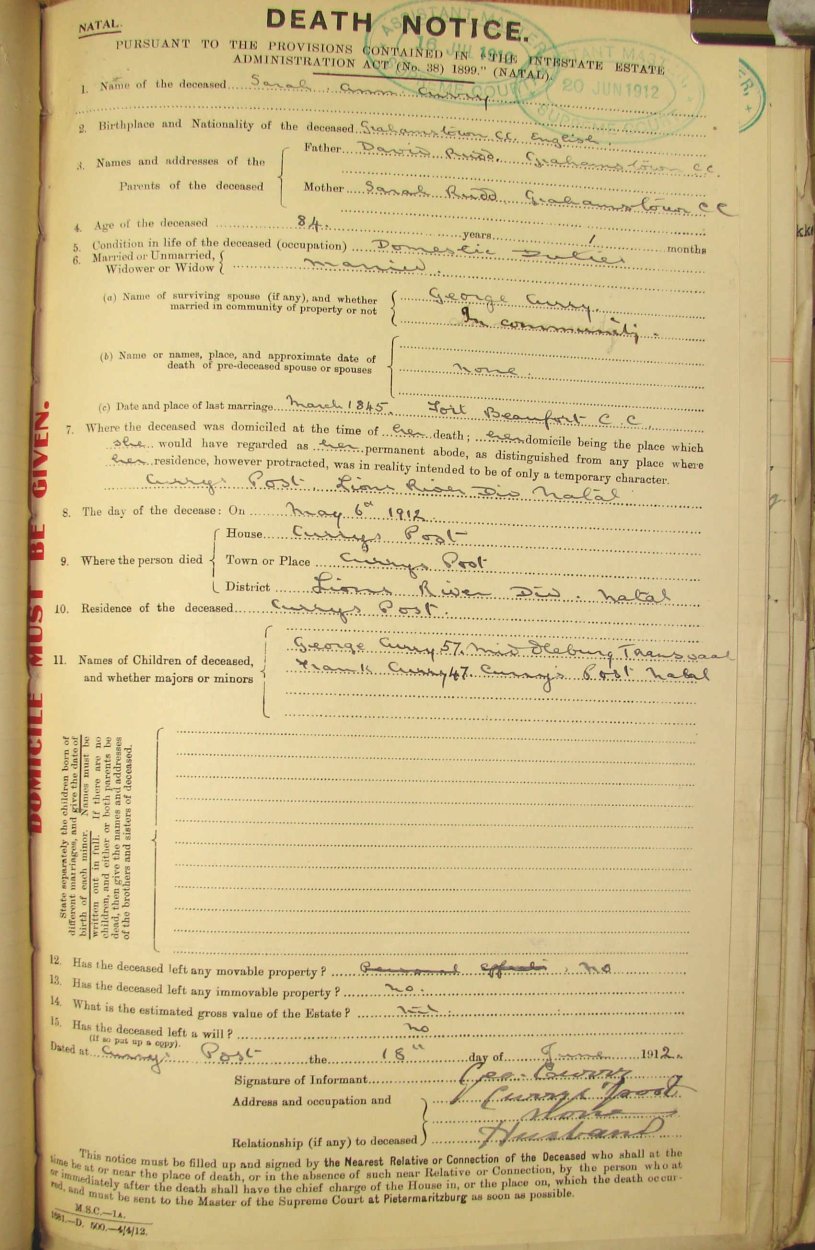 NATAL.
DEATH NOTICE.
PURSUANT TO THE PROVISIONS CONTAINED IN "THE INTESTATE ESTATE
ADMINISTRATION ACT (No. 38) 1899." (NATAL).
20 JUN 1912
1. Name of the deceased Sarah Ann Curry
2. Birthplace and Nationality of the deceased Grahamstown CC. English.
3. Names and addresses of the Parents of the deceased
Father David Rudd. Grahamstown CC.
Mother Sarah Rudd Grahamstown CC
4. Age of the deceased 84. years 1 months
5. Condition in life of the deceased (occupation) Domestic Duties
6. Married or Unmarried, Widower or Widow married.
(a) Name of surviving spouse (if any), and whether
married in community of property or not
George Curry.
In community.
(b) Name or names, place, and approximate date of
death of pre-deceased spouse or spouses
none.
(c) Date and place of last marriage March 1845. Fort Beaufort C.C.
7. Where the deceased was domiciled at the time of her death; her domicile being the place which
she would have regarded as her permanent abode, as distinguished from any place where
her residence, however protracted, was in reality intended to be of only a temporary character.
Currys Post, Lions River Div Natal
8. The day of the decease: On May 6th 1912.
9. Where the person died
House Currys Post
Town or Place Currys Post
District Lions River Div. Natal
10. Residence of the deceased Currys Post.
11. Names of Children of deceased,
and whether majors or minors
George Curry 57. Middleburg Transvaal
Frank Curry 47. Curry's Post Natal
DOMICILE MUST BE GIVEN.
State separately the children born of
different marriages, and give the date of
birth of each minor. Names must be
written out in full. If there are no
children, and either or both parents be
dead, then give the names and addresses
of the brothers and sisters of deceased.
12. Has the deceased left any movable property? Personal effects. no
13. Has the deceased left any immovable property? no.
14. What is the estimated gross value of the Estate? nil.
15. Has the deceased left a will? no
(If so put up a copy).
Dated at Currys Post the 18th day of June 1912.
Signature of Informant Geo. Curry
Address and occupation and Currys Post
None
Relationship (if any) to deceased Husband
This notice must be filled up and signed by the Nearest Relative or Connection of the Deceased who shall at the
time be at or near the place of death, or in the absence of such near Relative or Connection, by the person who at
or immediately after the death shall have the chief charge of the House in, or the place on, which the death occur-
red, and must be sent to the Master of the Supreme Court at Pietermaritzburg as soon as possible.
M.S.C.—1A.
1681.—D. 500.—4/4/12.